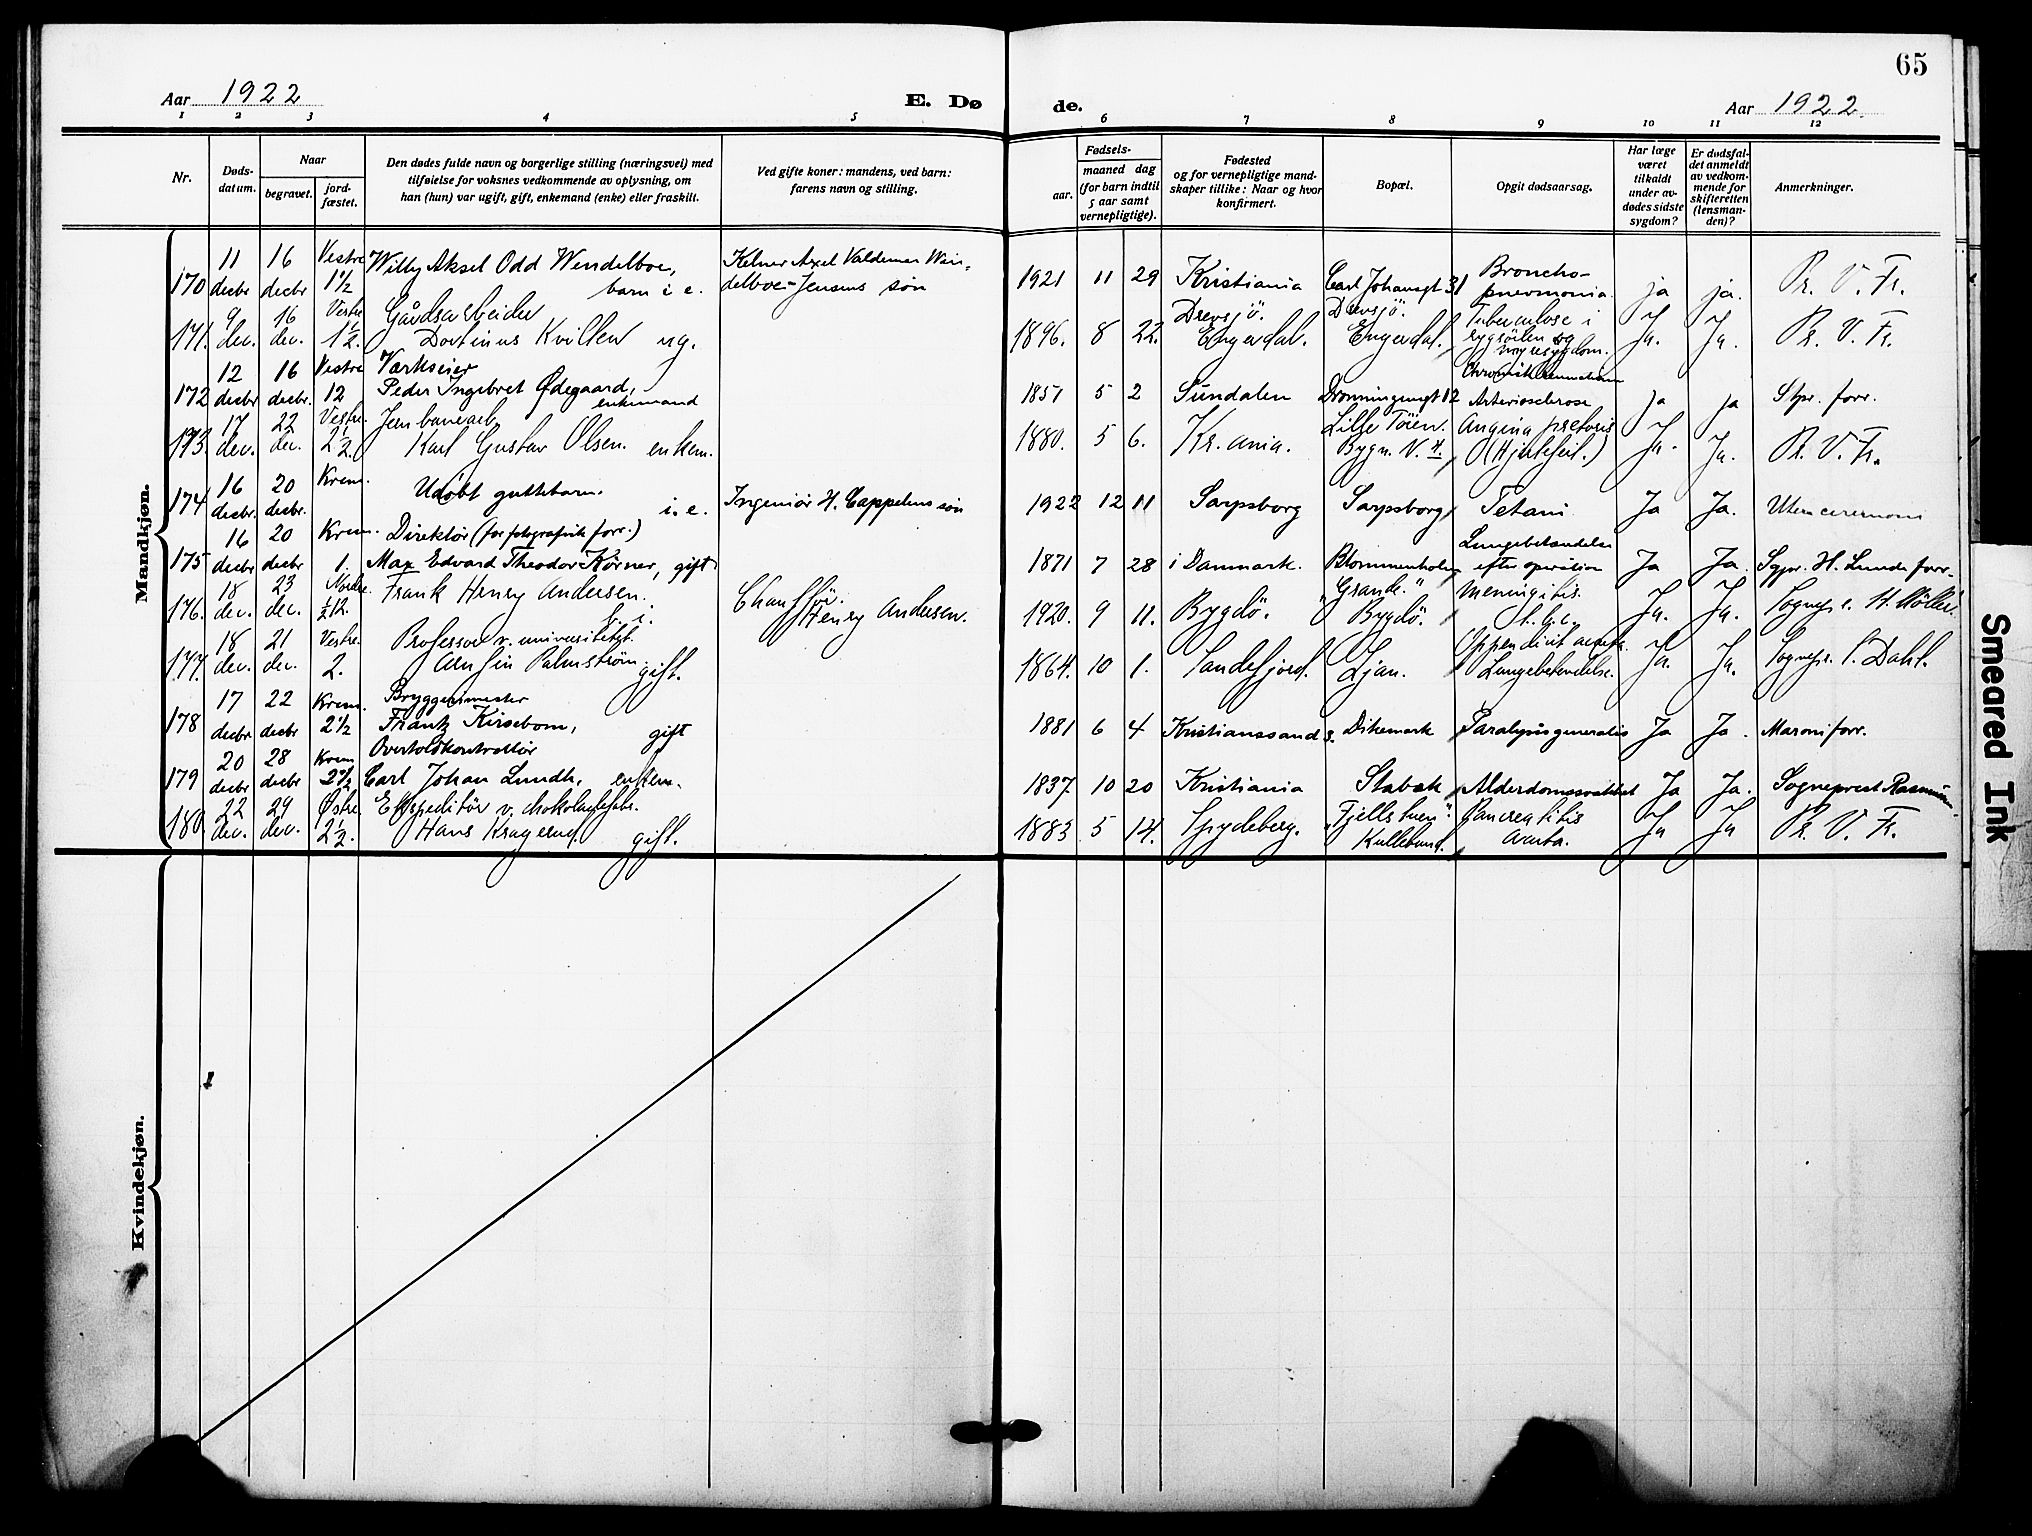 65
Aar 1922
E. Dø de.
Aar 1922.
1 2 3 4 5 6 7 8 9 10 11 12
Nr.
Døds-
datum.
Naar
begravet.
jord-
fæstet.
Den dødes fulde navn og borgerlige stilling (næringsvei) med
tilføielse for voksnes vedkommende av oplysning, om
han (hun) var ugift, gift, enkemand (enke) eller fraskilt.
Ved gifte koner: mandens, ved barn:
farens navn og stilling.
Fødsels-
aar.
maaned dag
(for barn indtil
5 aar samt
vernepligtige).
Fødested
og for vernepligtige mand-
skaper tillike: Naar og hvor
konfirmert.
Bopæl.
Opgit dødsaarsag.
Har læge
været
tilkaldt
under av-
dødes sidste
sygdom?
Er dødsfal-
det anmeldt
av vedkom-
mende for
skifteretten
(lensman-
den)?
Anmerkninger.
Mandkjøn.
11 16 Vestre Willy Aksel Odd Wendelboe, Kelner Axel Valdemar Wen- Broncho-
170 decbr decbr 1½ barn i e. delboe-Jensens søn 1921 11 29 Kristiania Carl Johansgt 31 pneumonia. ja ja. Pr. V. Fr.
9 16 Vestre Gårdsarbeider Drevsjö. Drevsjö. Tuberculose i
171. dec. dec. 1½. Dortinus Kvillen ug. 1896. 8 22. Engerdal. Engerdal. rygsöilen og Ja. Ja. Pr. V. Fr.
nyresygdom.
12 16 Vestre Værkseier
172 decbr decbr. 12 Peder Ingebret Ødegaard, enkemand 1851 5 2 Sundalen Dronningensgt 12 Arteriosclerose ja ja Stpr. forr.
17 22 Vestre. Jernbanearb. Lille Töien. Angina pectoris
173. dec. dec. 2½. Karl Gustav Olsen. enkem. 1880. 5 6. Kr.ania. Bygn. V. (Hjertefeil.) Ja. Ja. Pr. V. Fr.
16 20 Krem. Udøbt guttebarn.
174 decbr. decbr. i. e. Ingeniør H. Cappelens søn 1922 12 11 Sarpsborg Sarpsborg Tetani Ja Ja. Uten ceremoni
16 20 Krem. Direktør (for fotografisk forr.) Lungebetændelse
175 decbr decbr 1. Max Edvard Theodor Körner, gift 1871 7 28 i Danmark. Blommenholm efter operation Ja Ja. Sgpr. H. Lunde forr.
18 23 Nordre. Frank Henry Andersen. Chauffør. "Grande." Meningitis.
176. dec. dec. ½12. i. Henry Andersen. 1920. 9 11. Bygdö. Bygdö. Ja. Ja. Sognepr. H. Möller.
18 21 Vestre. Professor v. universitetet. Appendicit acuta.
177. dec. dec. 2. Arnfin Palmstrøm. gift. 1864. 10 1. Sandefjord. Ljan. Lungebetendelse. Ja. Ja. Sognepr. Dahl.
17 22 Krem. Bryggermester
178 decbr decbr 2½ Frantz Kirsebom, gift 1881 6 4 Kristianssand S. Dikemark Paralysis generalis Ja Ja. Maroni forr.
20 28 Krem Overtoldkontrollør
179 decbr decbr 2½ Carl Johan Lundh, enkem. 1837. 10 20 Kristiania Stabæk Alderdomssvakhet Ja Ja. Sogneprest Rasmussen
22 29 Østre. Ekspeditör v. chokoladefabr. "Fjellstuen". Pancreatitis
180. dec. dec. 2½. Hans Kragerud. gift. 1883 5 14. Spydeberg. Kullebund. acuta. Ja Ja Pr. V. Fr.
Kvindekjøn.
Smeared Ink